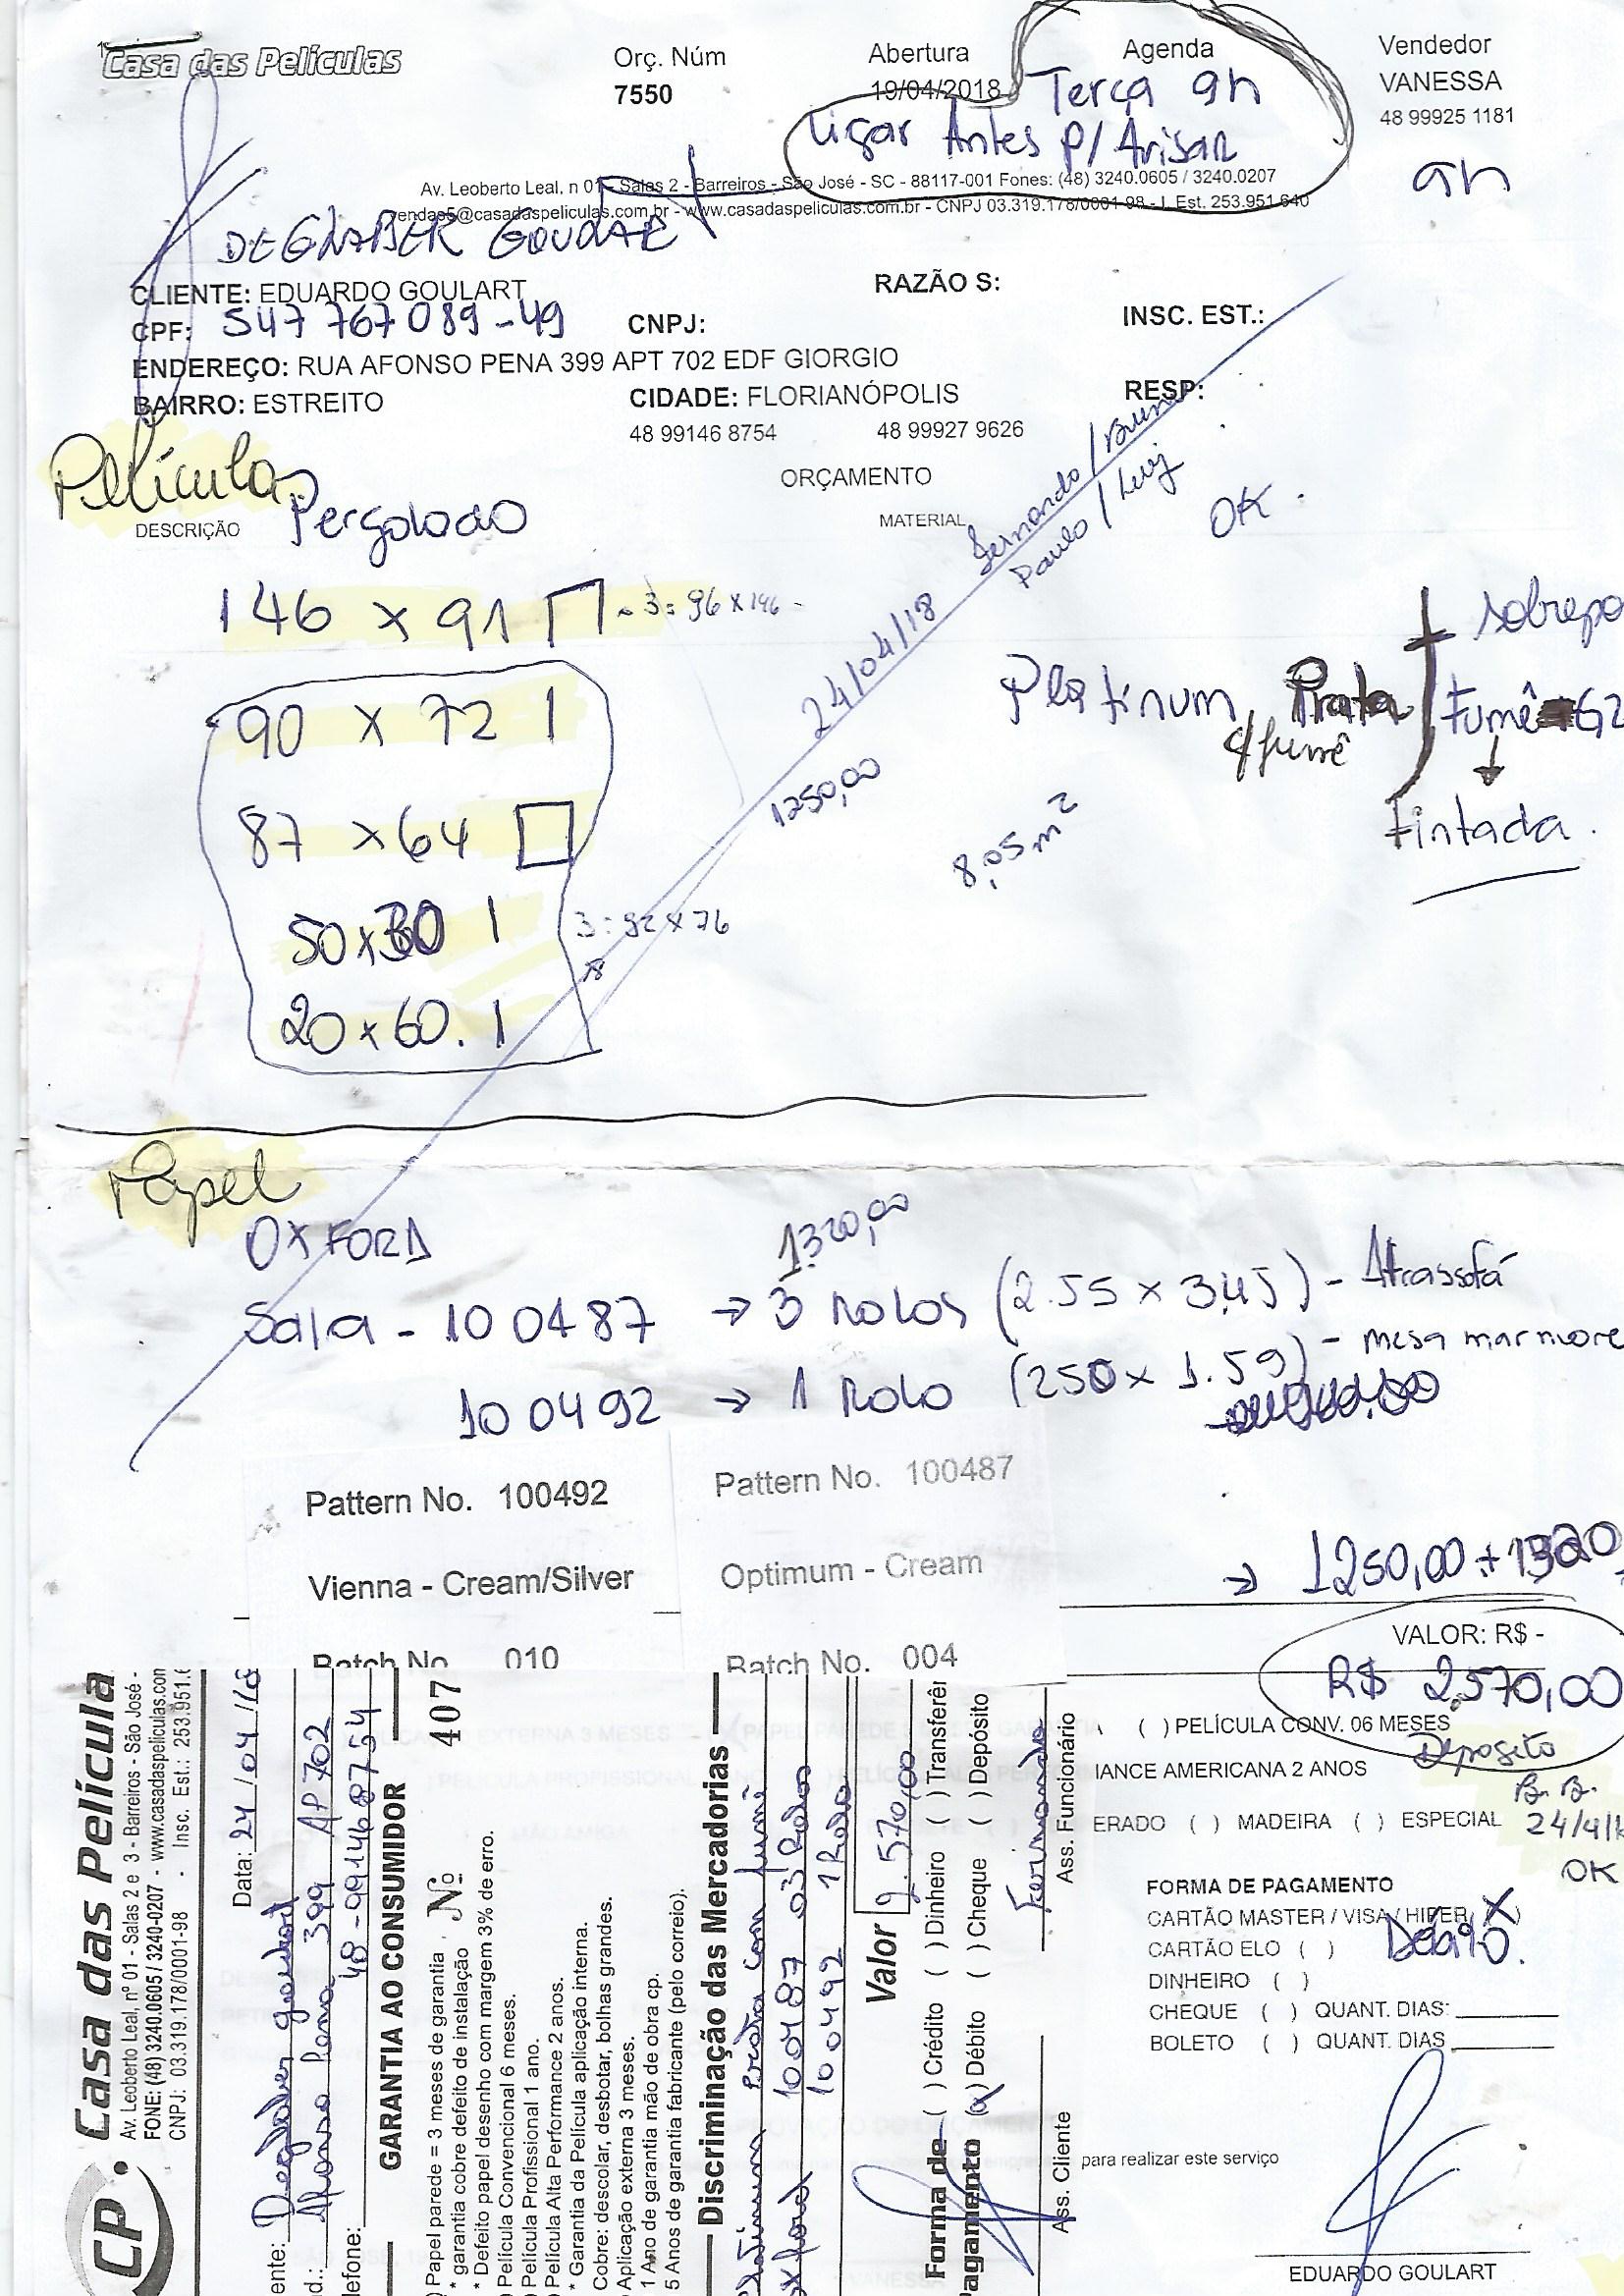 Casa das Películas
Orç. Núm
7550
Abertura
19/04/2018
Agenda
Terça 9h
Ligar Antes p/ Avisar
Vendedor
VANESSA
48 99925 1181
9h
Av. Leoberto Leal, n 01 - Salas 2 - Barreiros - São José - SC - 88117-001 Fones: (48) 3240.0605 / 3240.0207
vendas5@casadaspeliculas.com.br - www.casadaspeliculas.com.br - CNPJ 03.319.178/0001-98 - I. Est. 253.951.640
CLIENTE: EDUARDO GOULART
RAZÃO S:
CPF: 547 767 089-49
CNPJ:
INSC. EST.:
ENDEREÇO: RUA AFONSO PENA 399 APT 702 EDF GIORGIO
BAIRRO: ESTREITO
CIDADE: FLORIANÓPOLIS
RESP:
48 99146 8754
48 99927 9626
ORÇAMENTO
Películas
DESCRIÇÃO
Pergolado
MATERIAL
Fernando / Bruno
Paulo / Luiz
OK
146 x 91
3: 96 x 146
24/04/18
90 x 72 1
87 x 64
50x30 1
3: 92 x 76
20x60. 1
1250,00
8,05 m²
Platinum Prata
c/ fumê
sobrepo
fumê G2
tintada.
Papel
OXFORD
1320,00
Sala - 100487 → 3 Rolos (2.55 x 3,45) - Atrassofá
100492 → 1 Rolo (250 x 1.59) - mesa marmore
Pattern No. 100492
Vienna - Cream/Silver
Batch No. 010
Pattern No. 100487
Optimum - Cream
Batch No. 004
→ 1250,00 + 1320
VALOR: R$ -
R$ 2.570,00
Deposito
B.B.
24/4/1
OK
( ) PELÍCULA CONV. 06 MESES
IANCE AMERICANA 2 ANOS
ERADO ( ) MADEIRA ( ) ESPECIAL
FORMA DE PAGAMENTO
CARTÃO MASTER / VISA / HIPER (X)
Débito.
CARTÃO ELO ( )
DINHEIRO ( )
CHEQUE ( ) QUANT. DIAS:
BOLETO ( ) QUANT. DIAS
para realizar este serviço
EDUARDO GOULART
CP. Casa das Película
Av. Leoberto Leal, nº 01 - Salas 2 e 3 - Barreiros - São José -
FONE: (48) 3240.0605 / 3240-0207 - www.casadaspeliculas.com
CNPJ: 03.319.178/0001-98 - Insc. Est.: 253.951.6
Data: 24/04/18
ente: Degelber Goulart
d.: Afonso Pena 399 AP 702
lefone: 48-991468754
GARANTIA AO CONSUMIDOR
Nº 407
) Papel parede = 3 meses de garantia
* garantia cobre defeito de instalação
* Defeito papel desenho com margem 3% de erro.
) Película Convencional 6 meses.
) Película Profissional 1 ano.
) Película Alta Performance 2 anos.
* Garantia da Película aplicação interna.
Cobre: descolar, desbotar, bolhas grandes.
Aplicação externa 3 meses.
1 Ano de garantia mão de obra cp.
5 Anos de garantia fabricante (pelo correio).
Discriminação das Mercadorias
Platinum Prata com fumê
Oxford 100487 03 Rolos
100492 1 Rolo
Valor 2.570,00
Forma de Pagamento
( ) Crédito ( ) Dinheiro ( ) Transferên
(x) Débito ( ) Cheque ( ) Depósito
Fernando
Ass. Cliente
Ass. Funcionário